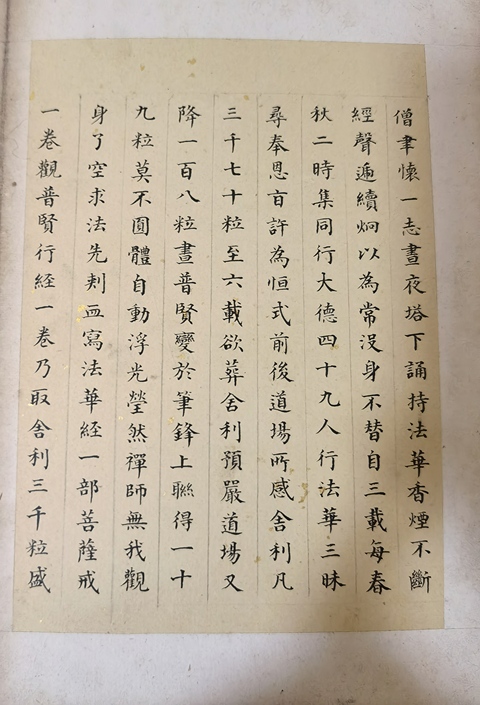 僧聿懷一志晝夜塔下誦持法華香煙不斷
經聲遞續炯以為常沒身不替自三載每春
秋二時集同行大德四十九人行法華三昧
尋奉恩旨許為恒式前後道場所感舍利凡
三千七十粒至六載欲葬舍利預嚴道場又
降一百八粒畫普賢變於筆鋒上聯得一十
九粒莫不圓體自動浮光瑩然禪師無我觀
身了空求法先刾血寫法華經一部菩薩戒
一卷觀普賢行經一卷乃取舍利三千粒盛